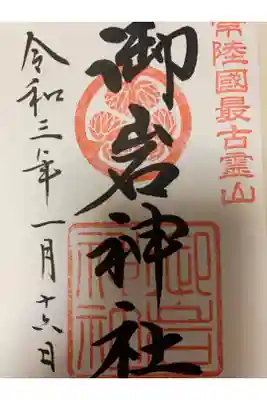 常陸國最古霊山
御岩神社
令和三年一月十六日
御岩神社